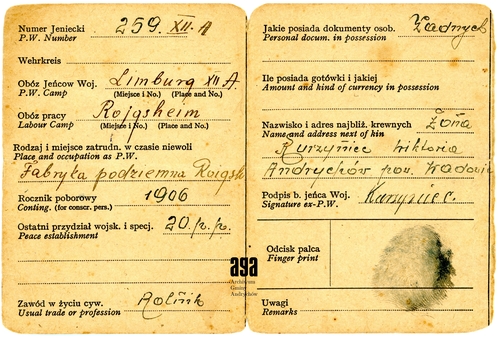 Numer Jeniecki 259. XII. A
P.W. Number
Wehrkreis
Obóz Jeńców Woj. Limburg XII A
P.W. Camp (Miejsce i No.) (Place and No.)
Obóz pracy Rojgsheim
Labour Camp (Miejsce i No.) (Place and No.)
Rodzaj i miejsce zatrudn. w czasie niewoli
Place and occupation as P.W.
Fabryka podziemna Roigsh
Rocznik poborowy 1906
Conting. (for conscr. pers.)
Ostatni przydział wojsk. i specj. 20.p.p.
Peace establishment
aga
Archiwum
Gminy
Andrychów
Zawód w życiu cyw. Rolnik
Usual trade or profession
Jakie posiada dokumenty osob. Żadnych
Personal docum. in possession
Ile posiada gotówki i jakiej
Amount and kind of currency in possession
Nazwisko i adres najbliż. krewnych Żona
Name and address next of kin
Wiktoria
Andrychów pow. Wadowic
Podpis b. jeńca Woj.
Signature ex-P.W.
Odcisk palca
Finger print
Uwagi
Remarks